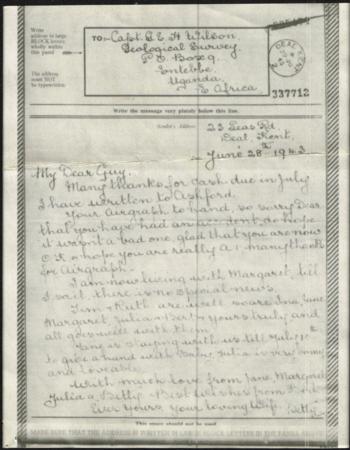 Write
address in large
BLOCK letters
wholly within
this panel
The address
must NOT
be typewritten
TO:- Capt. E E A Wilson.
Geological Survey.
P. O. Box 9.
Entebbe
Uganda.
E Africa
DEAL KENT
337712
Write the message very plainly below this line.
Sender's Address
23 Leas Rd.
Deal. Kent.
June 28th 1943
My Dear Guy.
Many thanks for cash due in July
I have written to Ashford.
Your Airgraph to hand, so sorry Dear
that you have had an accident, do hope
it wasn't a bad one, glad that you are now
O K & hope you are really A 1. many thanks
for Airgraph.
I am now living with Margaret, till
I sail, there is no special news.
Jim & Ruth are well so are Ina, Jane
Margaret, Julia & Betty yours truly and
all goes well with them.
Jane is staying with us till July
to give a hand with Baby, Julia is very bonny
and loveable.
With much love from Jane, Margaret
Julia & Betty. Best wishes from
Ever yours, your loving wife. Betty
This space should not be used
MAKE SURE THAT THE ADDRESS IS WRITTEN IN LARGE BLOCK LETTERS IN THE PANEL ABOVE